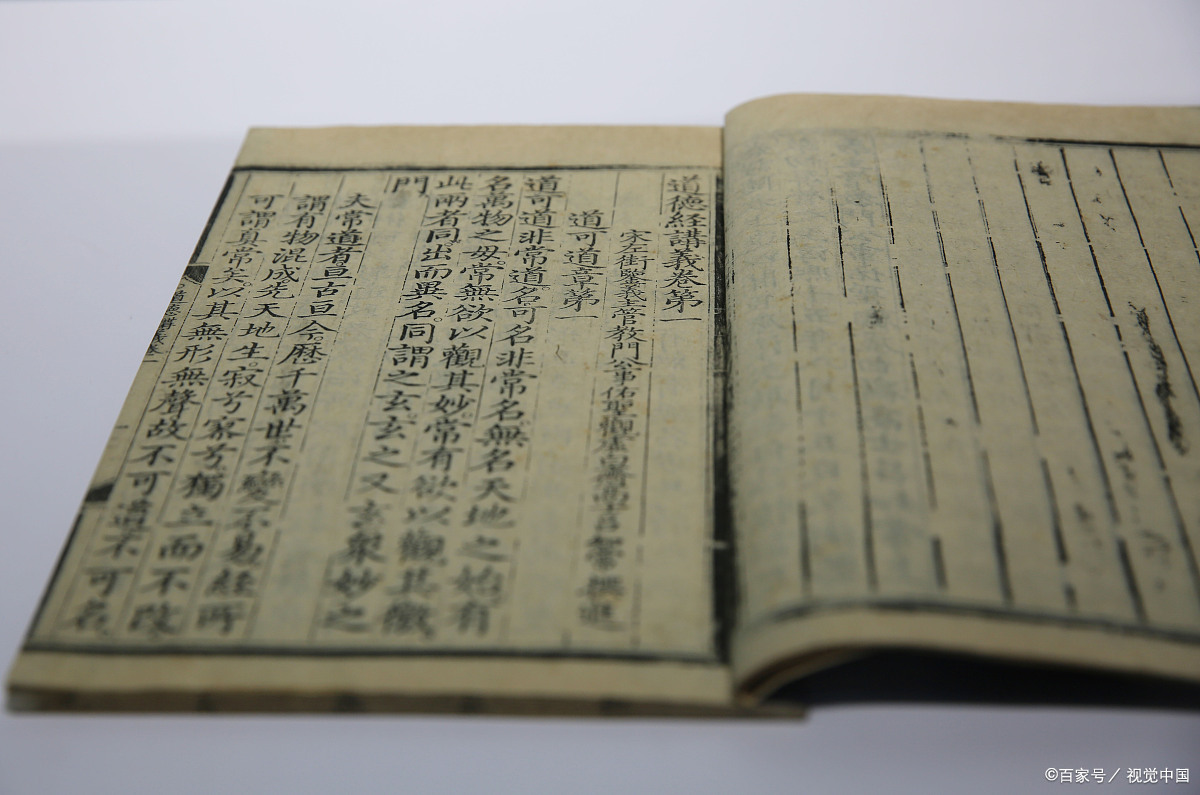 道德經講義卷第一
宋左街鑒義主管教門公事佑聖觀虛白齋高士呂知常撰進
道可道章第一
道可道非常道。名可名非常名。無名天地之始有
名萬物之母。常無欲以觀其妙。常有欲以觀其徼。
此兩者同。出而異名。同謂之玄。玄之又玄衆妙之
門
夫常道者。亘古亘今。歷千萬世。不變不易。經所
謂有物混成先天地生。寂兮寥兮獨立而不改。
可謂真常矣。以其無形無聲故不可道不可名。
©百家号／视觉中国